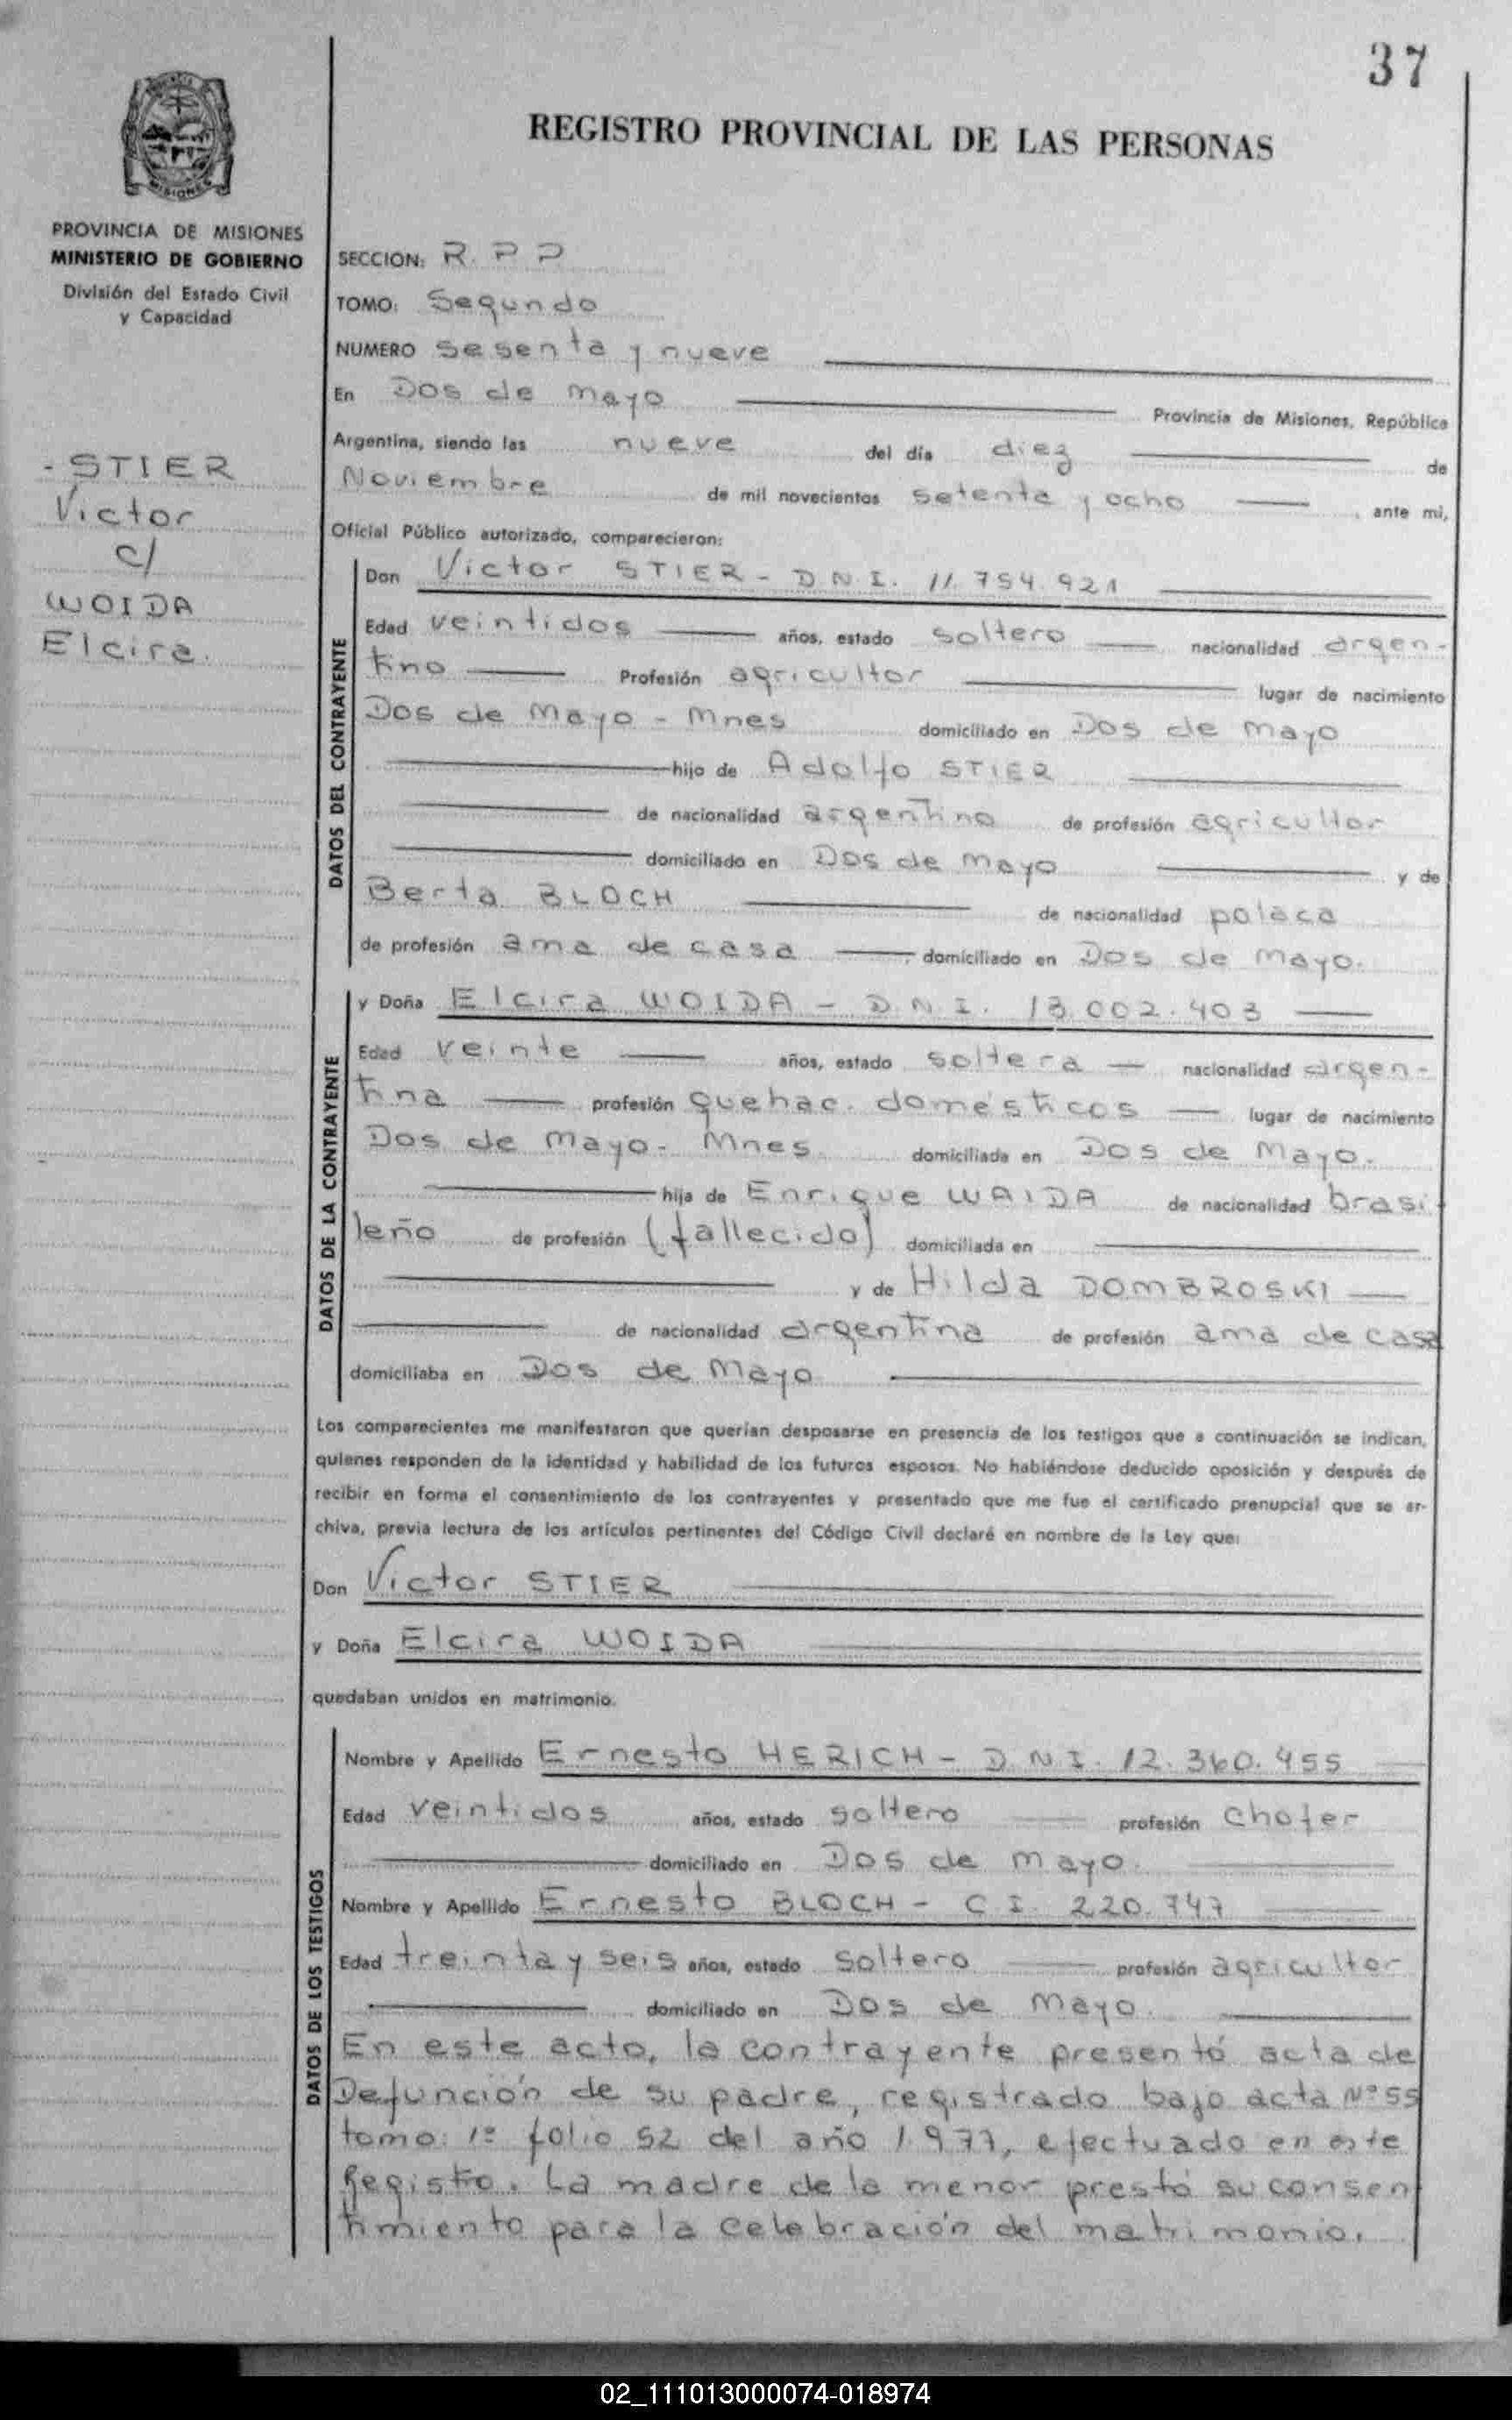 37
REGISTRO PROVINCIAL DE LAS PERSONAS
MISIONES
PROVINCIA DE MISIONES
MINISTERIO DE GOBIERNO
División del Estado Civil
y Capacidad
- STIER
Victor
c/
WOIDA
Elcira.
SECCION: R. P P
TOMO: Segundo
NUMERO sesenta y nueve
En Dos de mayo Provincia de Misiones, República
Argentina, siendo las nueve del día diez de
Noviembre de mil novecientos setenta y ocho, ante mi,
Oficial Público autorizado, comparecieron:
DATOS DEL CONTRAYENTE
Don Victor STIER - D.N.I. 11.754.921
Edad veintidos años, estado soltero nacionalidad argen-
tino Profesión agricultor lugar de nacimiento
Dos de Mayo - Mnes domiciliado en Dos de mayo
hijo de Adolfo STIER
de nacionalidad argentino de profesión agricultor
domiciliado en Dos de mayo y de
Berta BLOCH de nacionalidad polaca
de profesión ama de casa domiciliado en Dos de Mayo.
DATOS DE LA CONTRAYENTE
y Doña Elcira WOIDA - D.N.I. 13.002.403
Edad veinte años, estado soltera nacionalidad argen-
tina profesión quehac. domésticos lugar de nacimiento
Dos de mayo - Mnes domiciliada en Dos de Mayo.
hija de Enrique WAIDA de nacionalidad brasi
leño de profesión (fallecido) domiciliada en
y de Hilda DOMBROSKI
de nacionalidad argentina de profesión ama de casa
domiciliaba en Dos de Mayo
Los comparecientes me manifestaron que querían desposarse en presencia de los testigos que a continuación se indican,
quienes responden de la identidad y habilidad de los futuros esposos. No habiéndose deducido oposición y después de
recibir en forma el consentimiento de los contrayentes y presentado que me fue el certificado prenupcial que se ar-
chiva, previa lectura de los artículos pertinentes del Código Civil declaré en nombre de la Ley que:
Don Victor STIER
y Doña Elcira WOIDA
quedaban unidos en matrimonio.
DATOS DE LOS TESTIGOS
Nombre y Apellido Ernesto HERICH - D.N.I. 12.360.455
Edad veintidos años, estado soltero profesión chofer
domiciliado en Dos de mayo.
Nombre y Apellido Ernesto BLOCH - C I. 220.747
Edad treinta y seis años, estado soltero profesión agricultor
domiciliado en Dos de mayo.
En este acto, la contrayente presentó acta de
Defunción de su padre, registrado bajo acta Nº 55
tomo: 1º folio 52 del año 1.977, efectuado en este
Registro. La madre de la menor prestó su consen
timiento para la celebración del matrimonio.
02_111013000074-018974